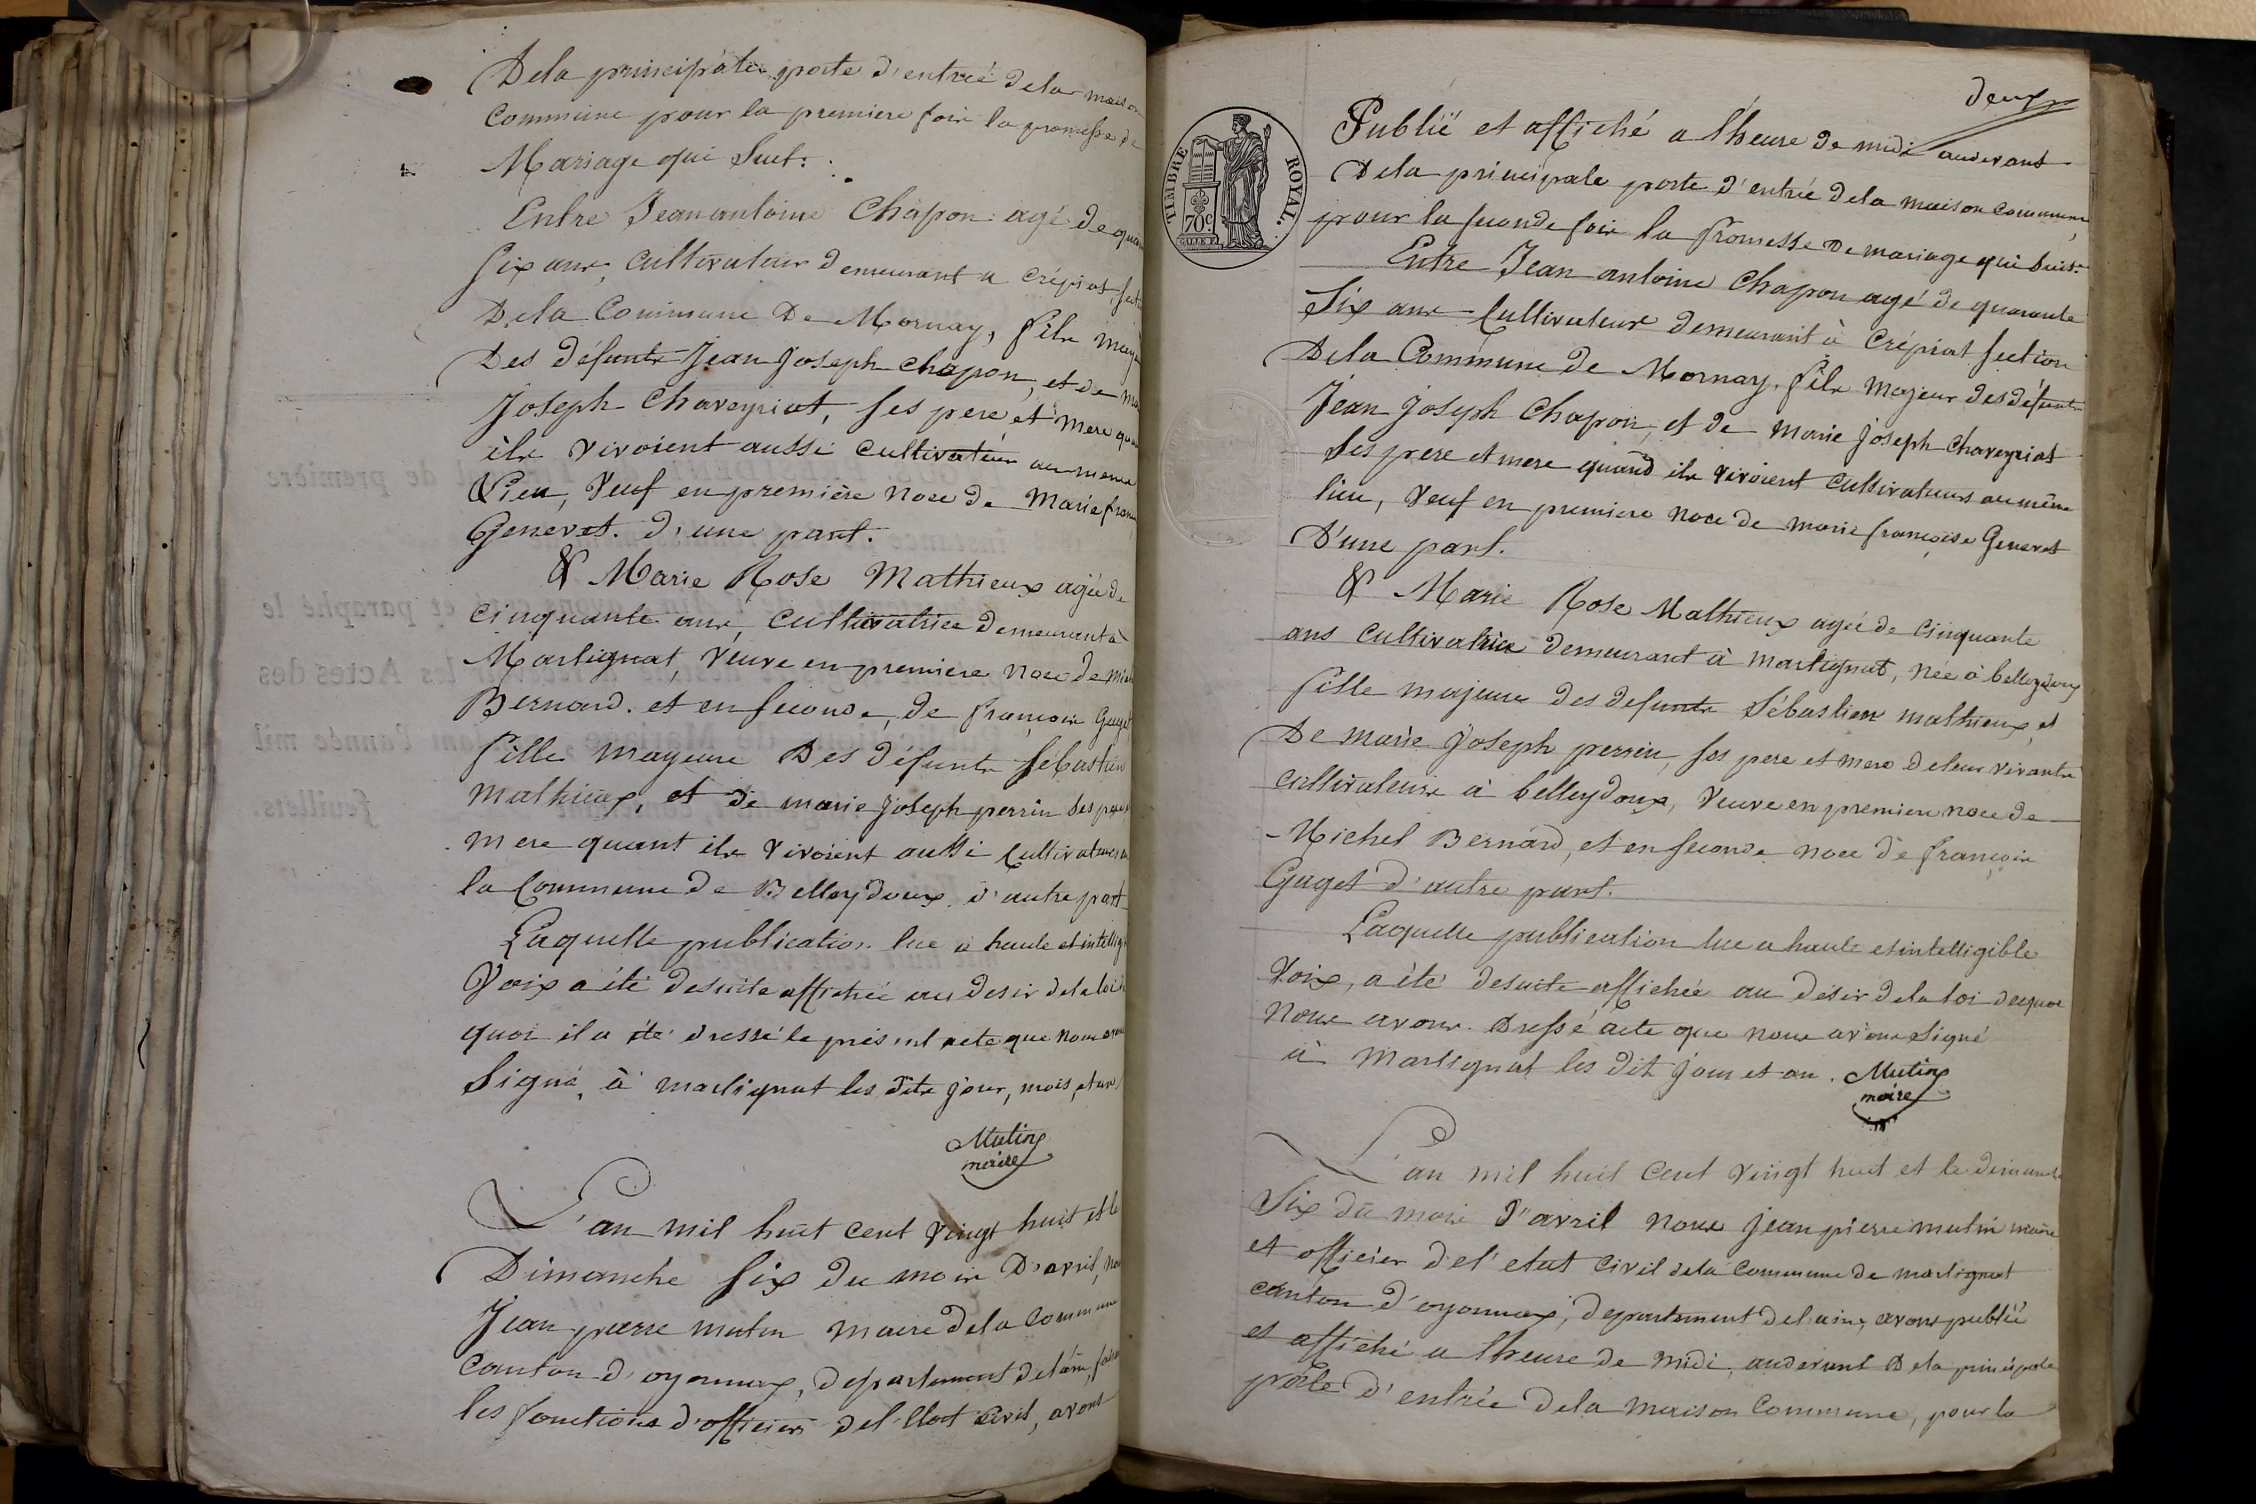 De la principale porte d'entreé de la maison
commune pour la premiere fois la promesse de
Mariage qui Suit:
Entre Jean antoine Chapon agé de
six ans, cultivateur demeurant a crépiat,
De la Commune De Mornay, fils
Des défunts Jean Joseph chapon, et de
Joseph Chaveyriat, ses pere et mere
ils vivoient aussi cultivateur au meme
Lieu, Veuf en première noce de Marie
Genevet. d'une part.
& Marie Rose Mathieux agée de
cinquante ans, cultivatrice demeurant à
Martignat, Veuve en premiere noce de
Bernard. et en seconde, de françois Guget
fille mayeure Des défunts sébastien
Mathieux, et de marie Joseph perrin ses
mere quant ils vivoient aussi Cultivateurs
la Commune de Belleydoux. d'autre part
Laquelle publication lue à haute et
Voix a été desuite affichée au desir de la loi
quoi il a été dressé le présent acte que nous
Signé, à martignat les dits jour, mois, et an
Mutin
maire
L'an mil huit cent vingt huit et le
Dimanche six du mois D'avril,
Jean pierre mutin maire de la Commune
canton d'oyonnax, département de l'ain,
les fonctions d'officier de l'Etat civil, avons
deux
Publié et affiché a l'heure de midi audevant
De la principale porte d'entrée de la maison commune,
pour la seconde fois la promesse De mariage qui suit:
Entre Jean antoine Chapon agé de quarante
Six ans Cultivateur demeurant à Crépiat section
De la Commune de Mornay, fils Majeur des défunts
Jean Joseph Chapon, et de marie Joseph Chaveyriat
Ses pere et mere quand ils vivoient cultivateurs au même
lieu, Veuf en premiere noce de marie françoise Genevet
D'une part.
& Marie Rose Mathieux agée de cinquante
ans cultivatrice demeurant à martignat, née à belleydoux
fille majeure des defunts Sébastien mathieux, et
De marie Joseph perrin, ses pere et mere de leur vivants
cultivateurs à belleydoux, Veuve en premiere noce de
Michel Bernard, et en seconde noce de françois
Guget d'autre part.
Laquelle publication lue a haute et intelligible
Voix, a été desuite affichée au désir de la loi de quoi
Nous avons Dressé acte que nous avons Signé
à Martignat les dit jour et an. Mutin
maire
TIMBRE ROYAL.
70 c
L'an mil huit cent vingt huit et le dimanche
Six du mois d'avril Nous Jean pierre mutin maire
et officier de l'etat civil de la Commune de martignat
canton d'oyonnax, département de l'ain, avons publié
et affiché a l'heure de midi, audevant De la principale
porte d'entrée de la maison Commune, pour la